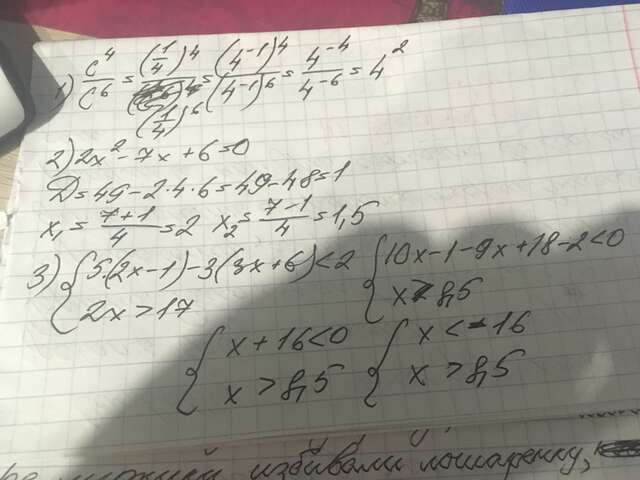 1) c⁴/c⁶ = (1/4)⁴/(1/4)⁶ = (4⁻¹)⁴/(4⁻¹)⁶ = 4⁻⁴/4⁻⁶ = 4²
2) 2x² - 7x + 6 = 0
D = 49 - 2·4·6 = 49 - 48 = 1
x₁ = (7+1)/4 = 2 x₂ = (7-1)/4 = 1,5
3) { 5·(2x-1) - 3(3x+6) < 2 { 10x - 1 - 9x + 18 - 2 < 0
2x > 17 x > 8,5
{ x + 16 < 0 { x < -16
x > 8,5 x > 8,5
избивали лошаренку,